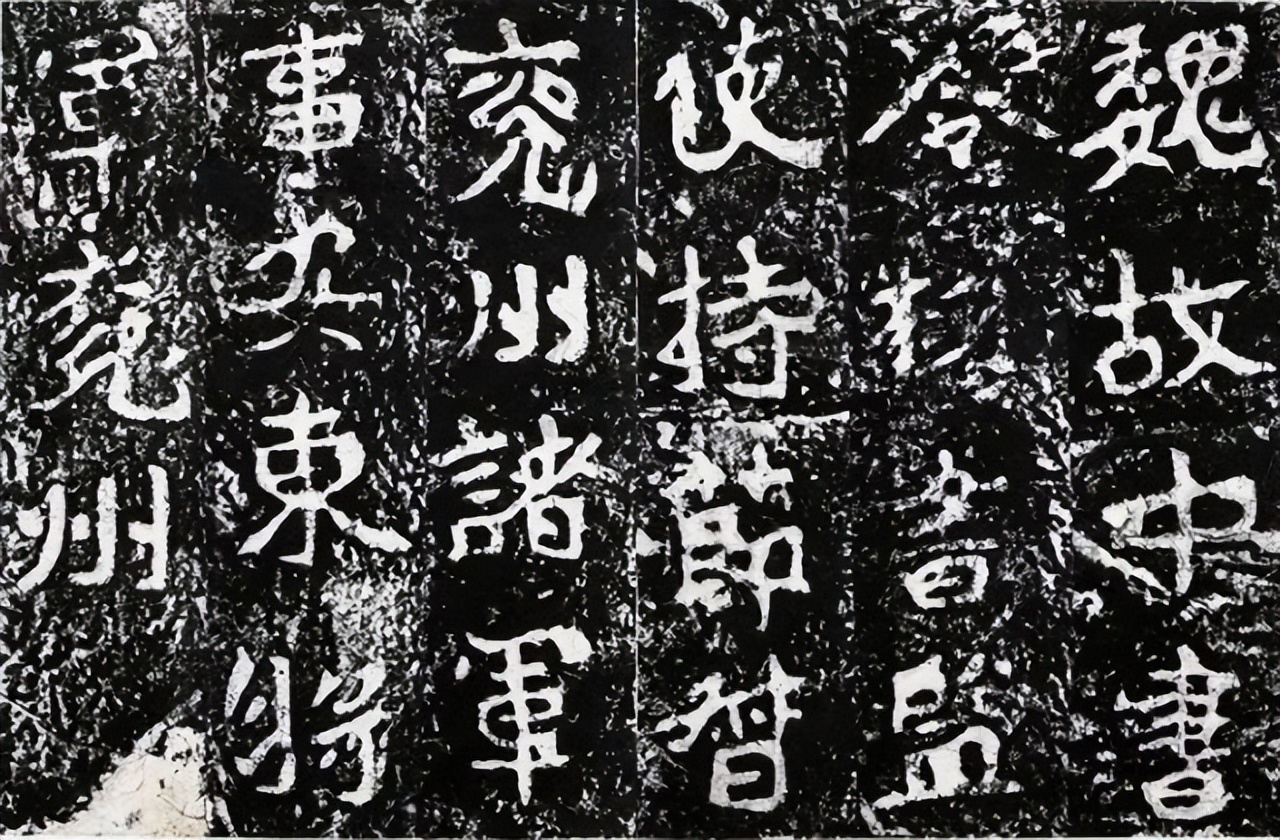 魏故中書
令秘書監
使持節督
兗州諸軍
事安東將
軍兗州